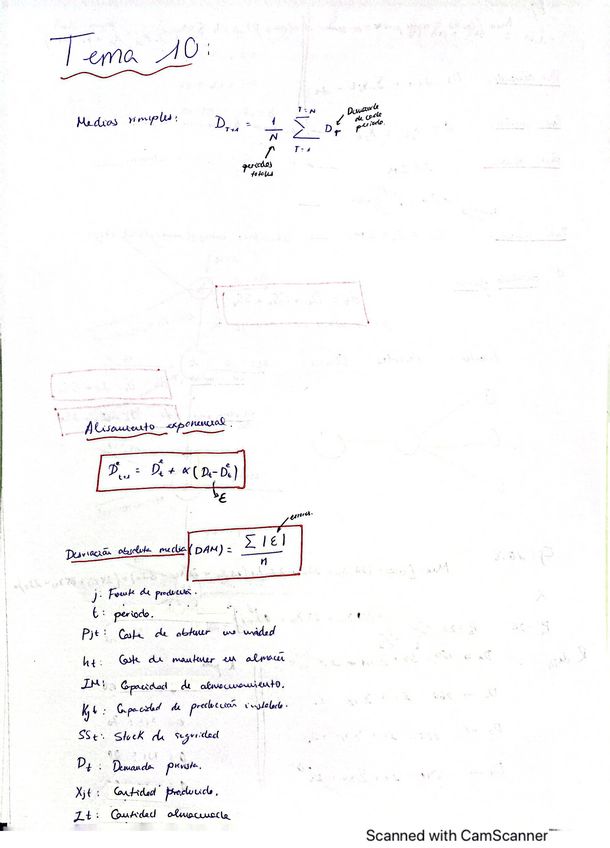 Tema 10:
Medias simples: D_{T+1} = 1/N ∑_{T=1}^{T=N} D_T
Demanda de cada periodo.
periodos totales
Alisamiento exponencial.
D^e_{t+1} = D^e_t + α (D_t - D^e_t)
ε
errores.
Desviación absoluta media (DAM) = ∑ |ε| / n
j: Fuente de producción.
t: periodo.
Pjt: Coste de obtener una unidad
ht: Coste de mantener en almacén
IM: Capacidad de almacenamiento.
Kjt: Capacidad de producción instalada.
SSt: Stock de seguridad
Dt: Demanda prevista.
Xjt: Cantidad producida.
It: Cantidad almacenada
Scanned with CamScanner